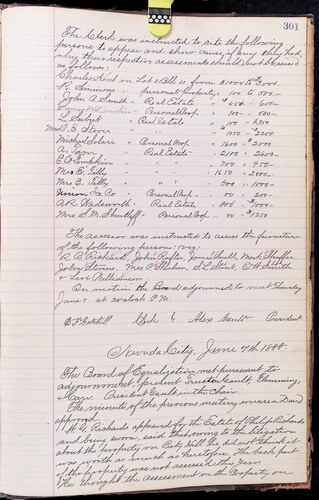 301
The Clerk was instructed to cite the following
persons to appear and show cause if any they had,
why their respective assessments should not be raised
as follows:
Charles Kent on Lot 2 Blk 12 from $1000 to $2000.
R. Simmons " personal property " 100 to 500 -
John A Smith " Real Estate " $450 - 600 -
" Personal Prop " 100 - 500 -
" Real Estate " 100 - 1200
Mrs " " 1000 - $1200
Michel Solari " Personal Prop " 1600 - $2000
A. " Real Estate - 2100 - 2600
E O Tompkins " " " 700 - 950 -
Mrs E. Tilly " " " 1650 - 2000 -
Mrs E. Tilly " " " 500 - 1000 -
Union Ice Co " Personal Prop - 00 - 200 -
A R Wadsworth - Real Estate - 800 - $1000 -
Mrs S. M. Shurtleff - Personal Prop. - 00 - $1250
The assessor was instructed to assess the furniture
of the following persons: viz:
R. B. Richards, John Rofter, James Snell, Mrs
Toby Stevens, Mrs S. L. Stout, E H Smith
& Levi Williamson,
On motion the Board adjourned to meet Thursday
June 7 at 2 o'clock P.M.
Clerk & Alex Gault President
Nevada City, June 7th 1888
The Board of Equalization met pursuant to
adjournment: present Trustees Gault, Fleming,
& Carr. President Gault in the Chair.
The minutes of the previous meeting were read and
approved.
W. G. Richards appeared for the Estate of Philip Richards
and being sworn, said that owing to the litigation
about the property on Piety Hill he did not think it
was worth as much as heretofore. The back part
of the property was not assessed this year.
He thought the assessment on the Property on